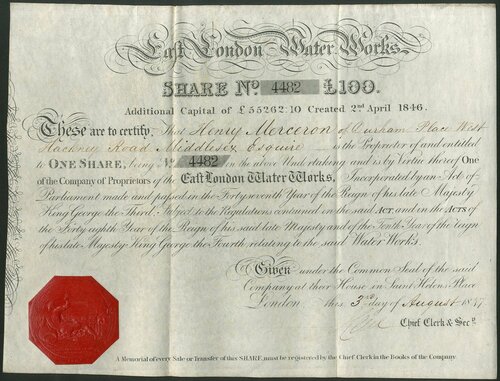 East London Water Works.
SHARE No. 4482 £100.
Additional Capital of £55262.10 Created 2nd April 1846.
These are to certify, That Henry Merceron of Durham Place West
Hackney Road Middlesex Esquire is the Proprietor of and entitled
to ONE SHARE, being No. 4482 in the above Undertaking and is by Virtue thereof One
of the Company of Proprietors of the East London Water Works, Incorporated by an Act of
Parliament made and passed in the Forty seventh Year of the Reign of his late Majesty
King George the Third, Subject to the Regulations contained in the said ACT and in the ACTS of
the Forty eighth Year of the Reign of his said late Majesty and of the Tenth Year of the reign
of his late Majesty King George the Fourth relating to the said Water Works.
Given under the Common Seal of the said
Company at their House in Saint Helens Place
London, this 3rd day of August 1847
Chief Clerk & Secy.
A Memorial of every Sale or Transfer of this SHARE, must be registered by the Chief Clerk in the Books of the Company.